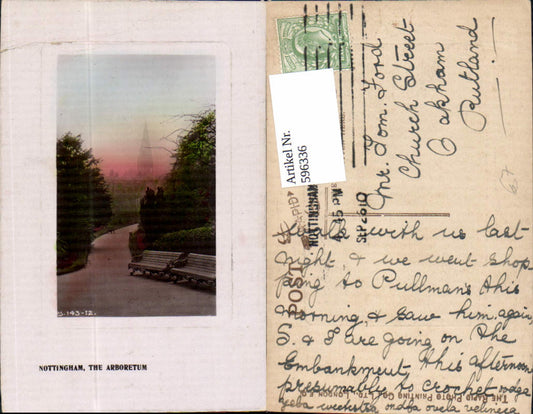 S.143-12.
NOTTINGHAM, THE ARBORETUM
Artikel Nr.
596336
NOTTINGHAM
35 PM
SEP 26 10
POST
Mr. Tom. Ford
Church Street
Oakham
Rutland
67
with us last
night & we went shop-
ping to Pullmans this
morning, & saw him, again,
S. & I are going on the
Embankment this afternoon
presumably to crochet
THE RAPID PHOTO PRINTING CO. LTD. LONDON E.C.